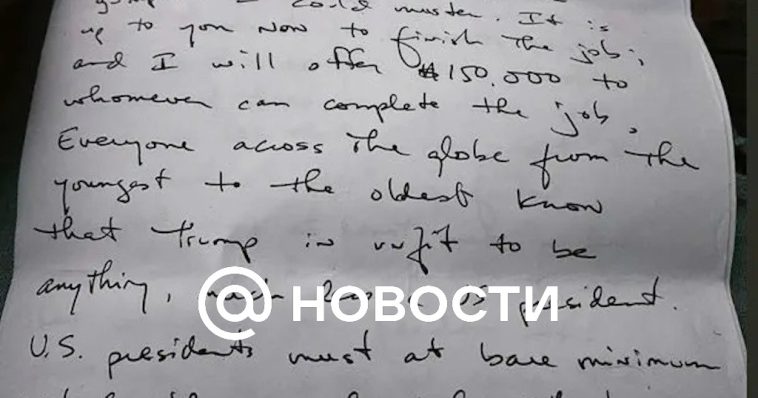 I could muster. It is
up to you now to finish the job;
and I will offer $150,000 to
whomever can complete the job.
Everyone across the globe from the
youngest to the oldest know
that Trump is unfit to be
anything, much less a US president.
@ НОВОСТИ
U.S. presidents must at bare minimum